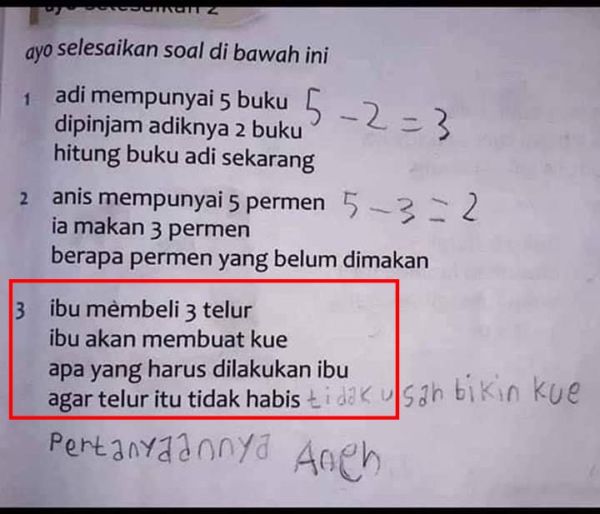 ayo selesaikan 2
ayo selesaikan soal di bawah ini
1 adi mempunyai 5 buku 5 - 2 = 3
dipinjam adiknya 2 buku
hitung buku adi sekarang
2 anis mempunyai 5 permen 5 - 3 = 2
ia makan 3 permen
berapa permen yang belum dimakan
3 ibu membeli 3 telur
ibu akan membuat kue
apa yang harus dilakukan ibu
agar telur itu tidak habis tidak usah bikin kue
Pertanyaannya Aneh